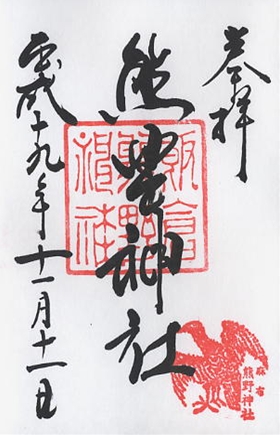 奉拝
熊野神社
平成十九年十一月十一日
飯倉
熊野
神社
麻布
熊野神社